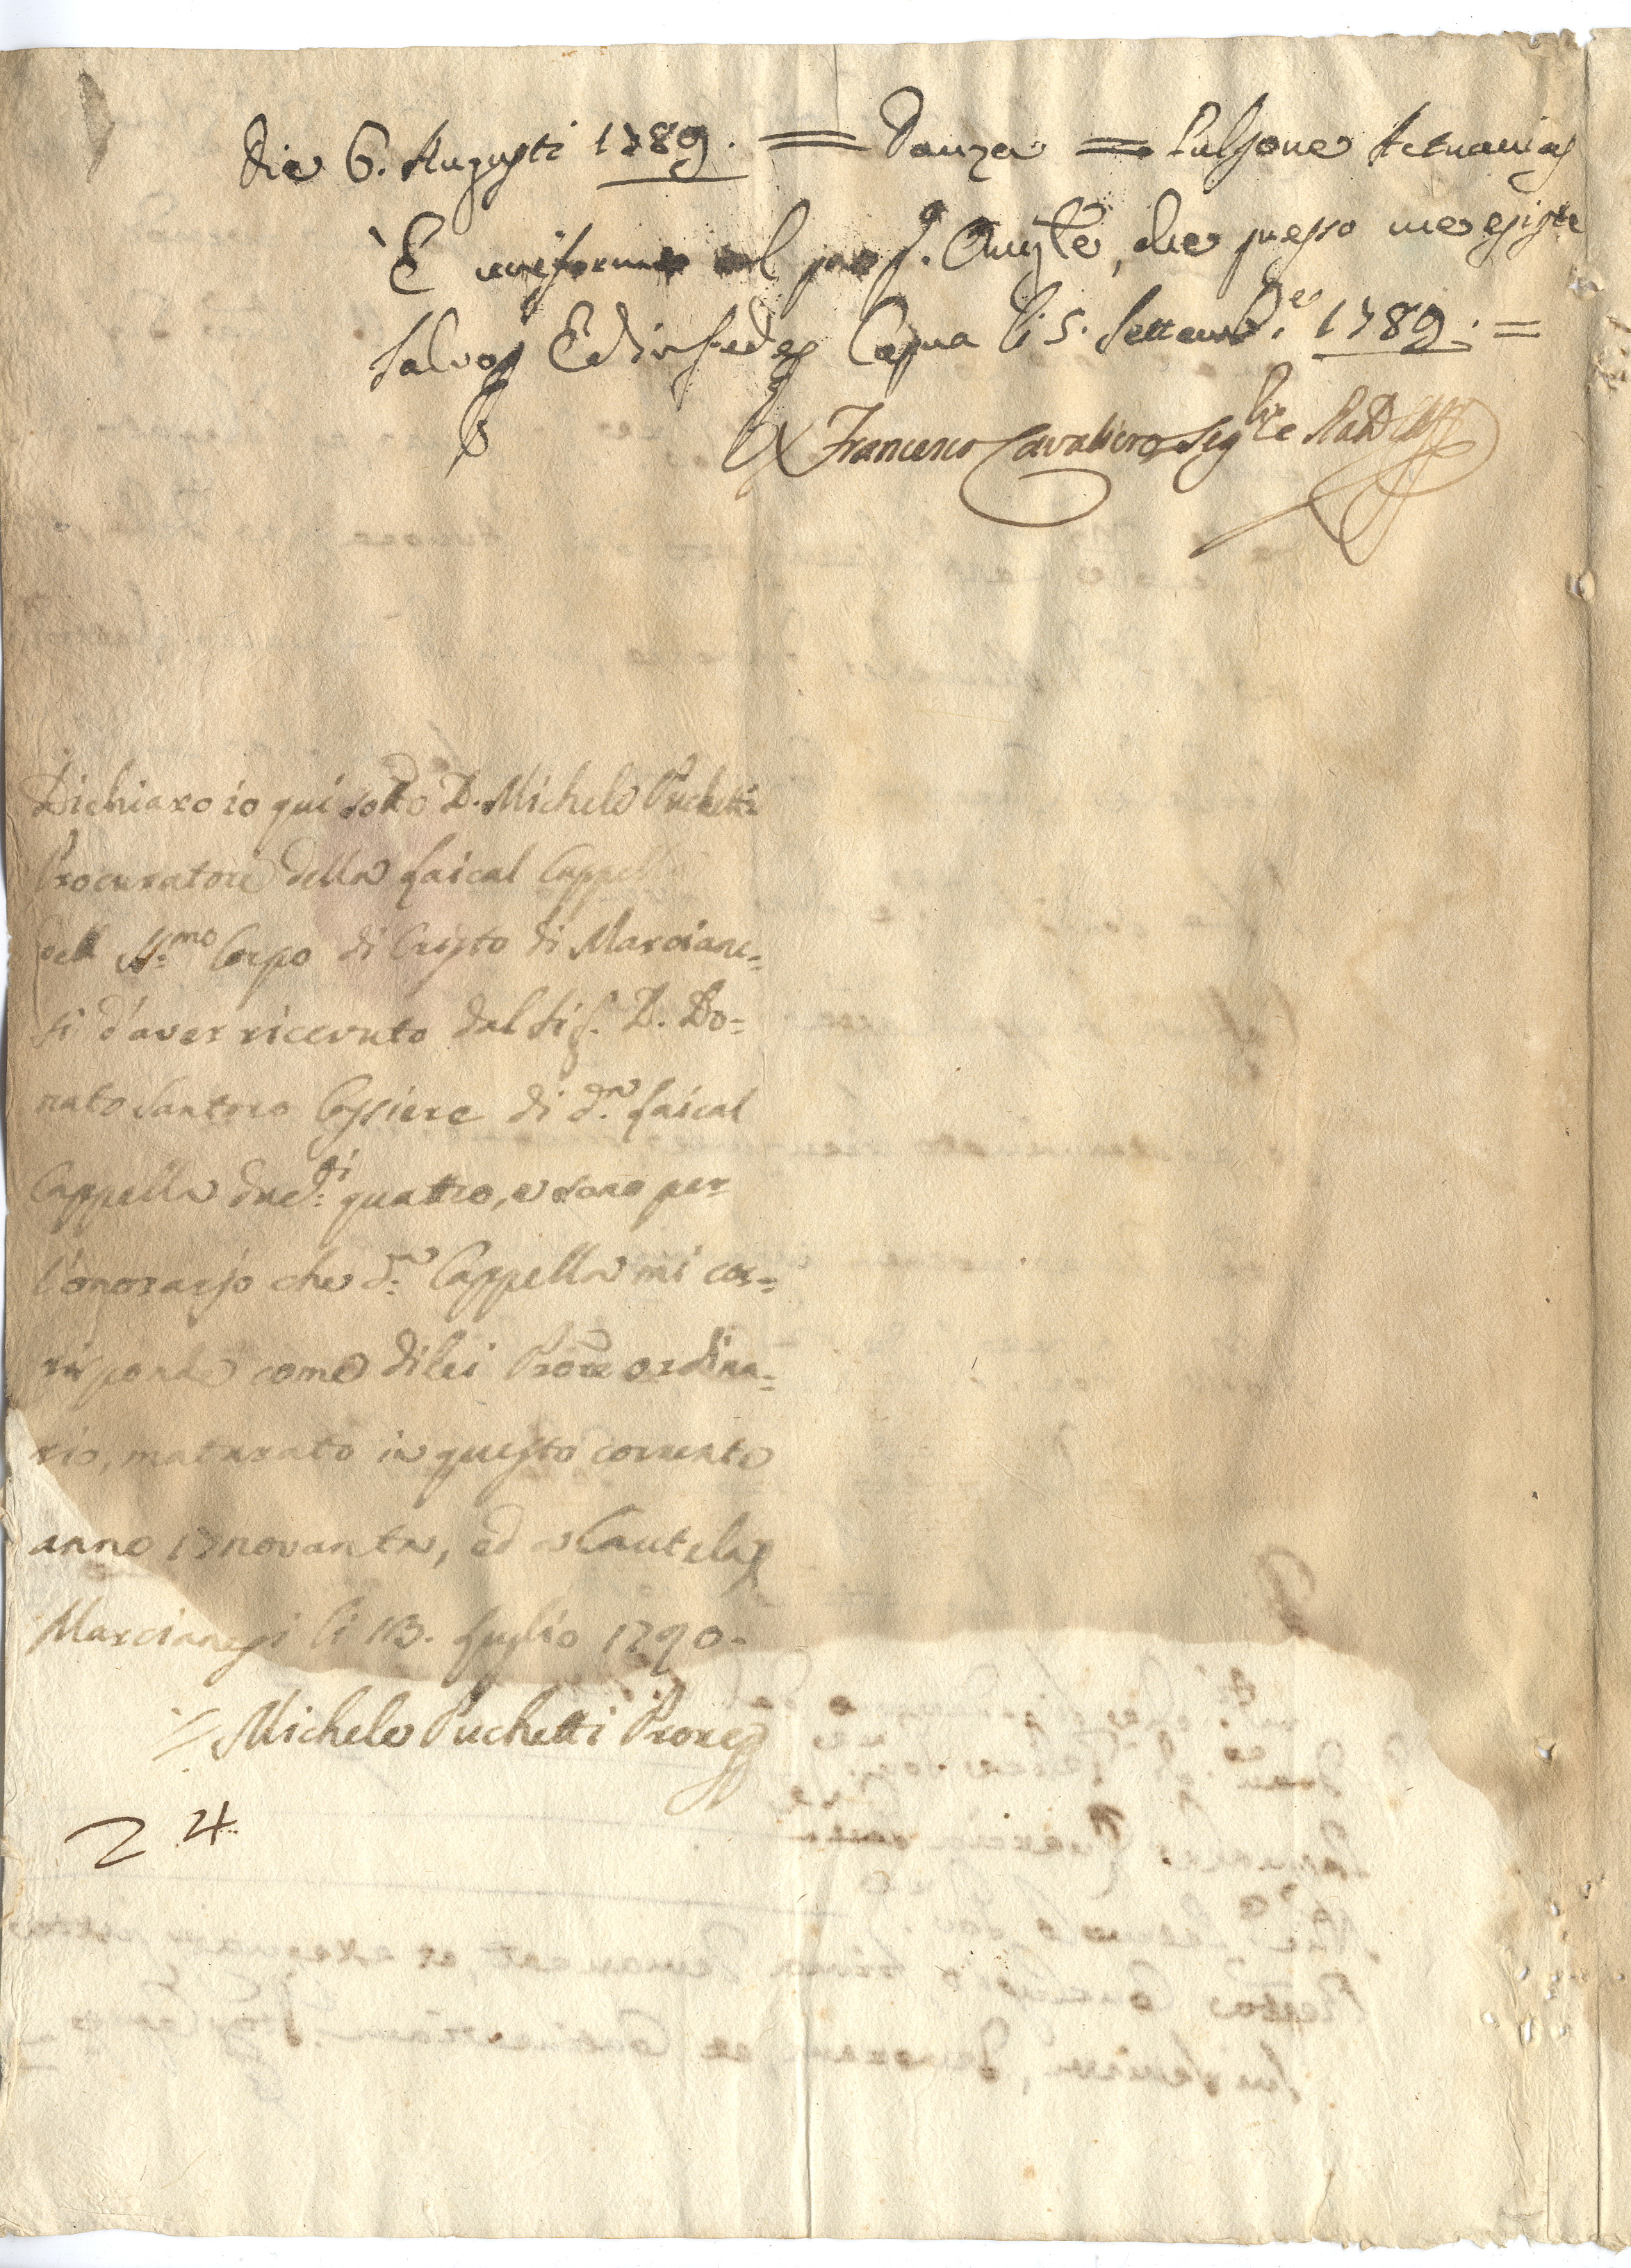 Die 6. Augusti 1789. = Danza = Pulsone Actuarius
È uniforme al pnte, che presso me esiste
salvo &c. Ed in fede &c. Capua li 5. Settemb.e 1789. =
Francesco Cavaliero
Dichiaro io qui sotto D. Michele Puchetti
Procuratore della Laical Cappella
dell SS.mo Corpo di Cristo di Marciane=
si d'aver ricevuto dal Sig. D. Do=
nato Santoro Cassiere di d.a Laical
Cappella duc.ti quattro, e sono per
l'onorarjo che d.a Cappella mi cor=
risponde come di lei Prore ordina=
rio, maturato in questo corrente
anno 17novanta, ed a Cautela &c.
Marcianesi li 13. Luglio 1790.
Michele Puchetti Prore &c.
4